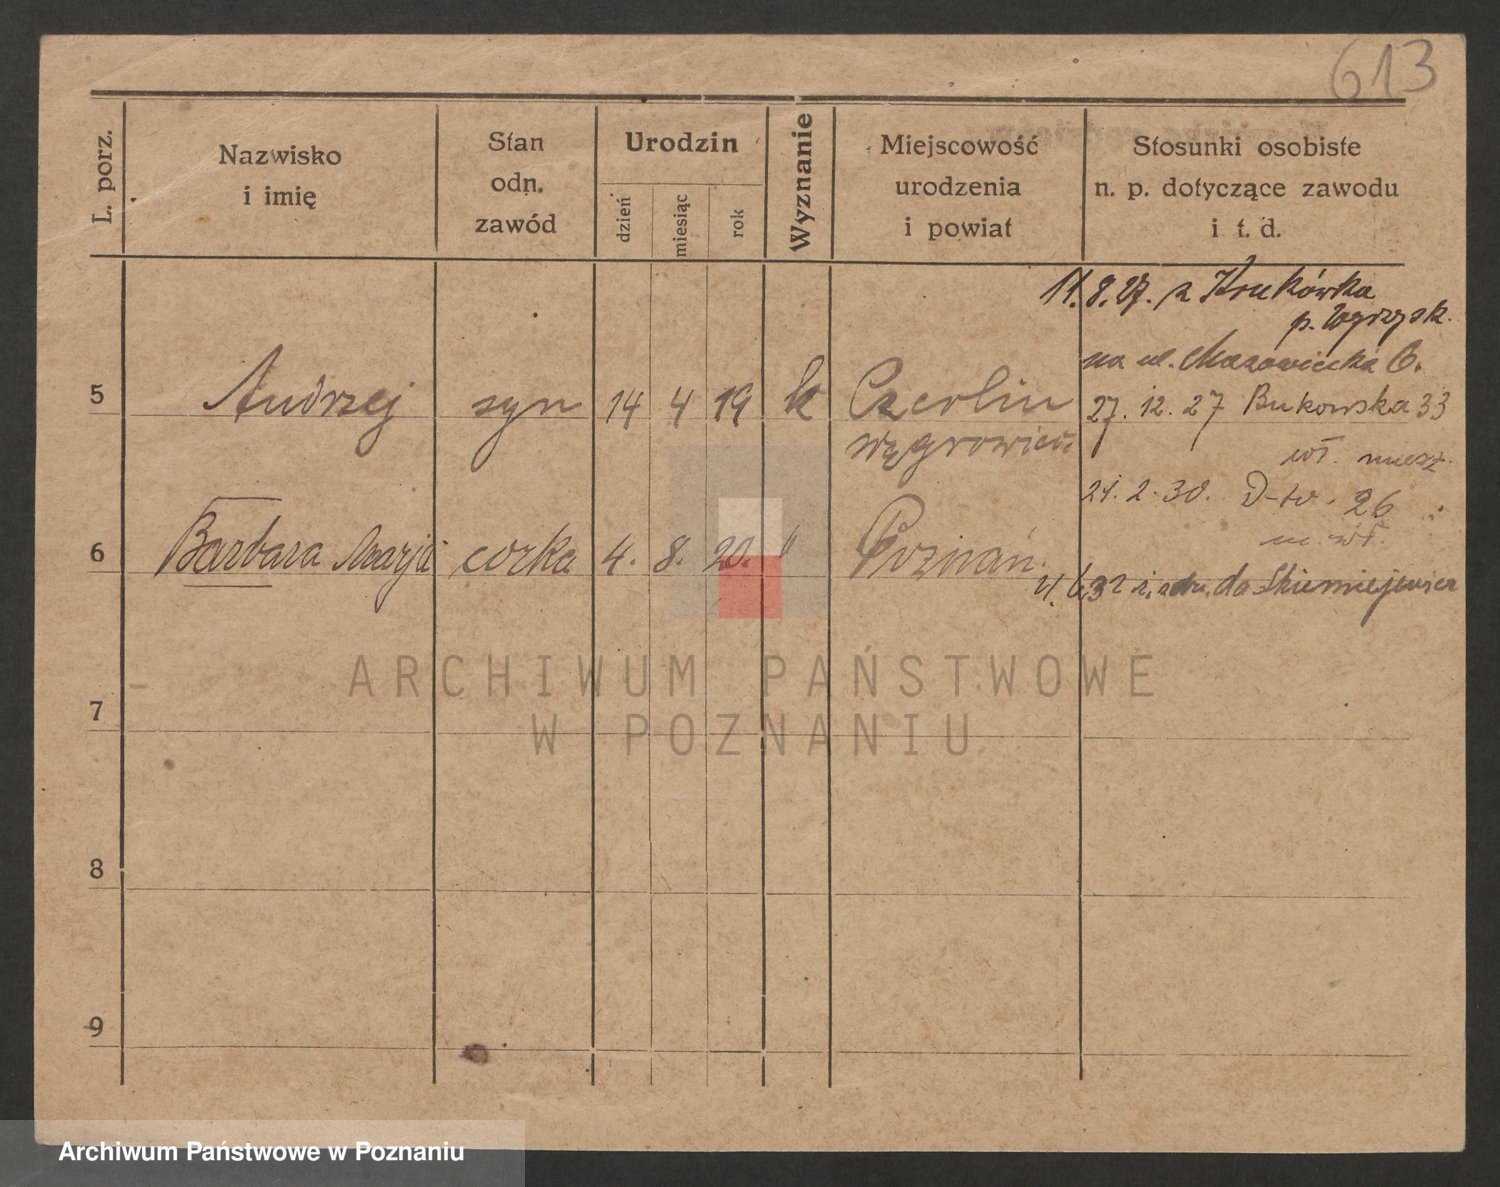 613
L. porz.
Nazwisko
i imię
Stan
odn.
zawód
Urodzin
dzień
miesiąc
rok
Wyznanie
Miejscowość
urodzenia
i powiat
Stosunki osobiste
n. p. dotyczące zawodu
i t. d.
11.8.27. z Krukówka
p. Wyrzysk.
na ul. Mazowiecka 6.
5 Andrzej syn 14 4 19 k Czerlin
27. 12. 27 Bukowska 33
wągrowiec
wł. miesz.
21. 2. 30. D-to. 26
6 Barbara Marja corka 4. 8. 20. " Poznań.
do Skierniewic
7
8
9
ARCHIWUM PAŃSTWOWE
W POZNANIU
Archiwum Państwowe w Poznaniu